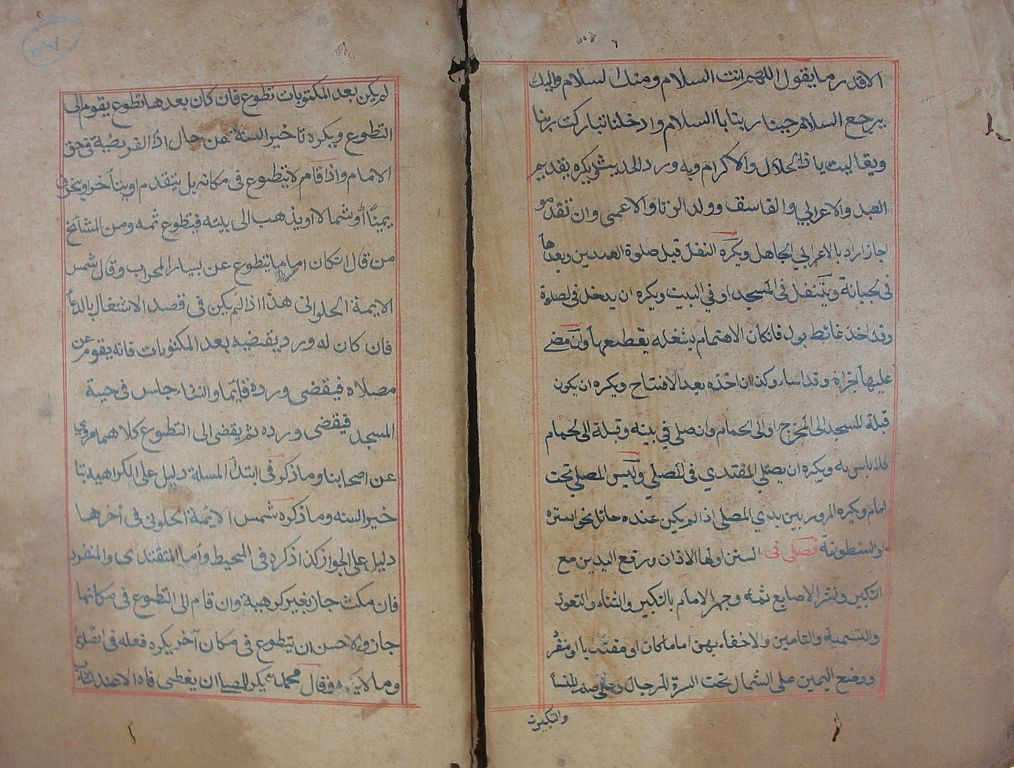 الا قدر ما يقول اللهم انت السلام ومنك السلام واليك
يرجع السلام حينا ربنا بالسلام وادخلنا تباركت ربنا
وتعاليت يا ذا الجلال والاكرام وبه ورد الحديث ويكره تقديم
العبد والاعرابي والفاسق وولد الزنا والاعمى وان تقدموا
جاز اراد بالاعرابي الجاهل ويكره النفل قبل صلوة العيدين وبعدها
في الجبانة ويتنفل في المسجد او في البيت ويكره ان يدخل في الصلوة
وقد اخذ غائط بول فان كان الاهتمام يشغله يقطعها وان مضى
عليها اجزاه وقد اساء وكذا ان اخذه بعد الافتتاح ويكره ان يكون
قبلة المسجد الى المخرج او الى الحمام وان صلى في بيته وقبلة الى الحمام
فلا باس به ويكره ان يصلي المقتدي في المصلي وليس المصلي تحت
امام ويكره المرور بين يدي المصلي اذا لم يكن عنده حائل نحو السترة
او السطوانة فصل في السنن اولها الاذان ورفع اليدين مع
التكبير ونشر الاصابع ثمه وجهر الامام بالتكبير والثناء والتعوذ
والتسمية والتامين والاخفاء بهن اماما كان او مقتديا او منفر
ووضع اليمين على الشمال تحت السرة للرجال وعلى صدر للنساء
والتكبير
لم يكن بعد المكتوبات تطوع فان كان بعدها تطوع يقوم الى
التطوع ويكره تاخير السنة عن حال اداء الفريضة في حق
الامام واذا قام لا يتطوع في مكانه بل يتقدم او يتأخر وينحرف
يمينا او شمالا او يذهب الى بيته فيتطوع ثمه ومن المشائخ
من قال ان كان اماما يتطوع عن يسار المحراب وقال شمس
الايمة الحلواني هذا اذا لم يكن في قصد الاشتغال بالدعاء
فان كان له ورد يقضيه بعد المكتوبات فانه يقوم عن
مصلاه فيقضي ورده قائما وان شاء جلس في
المسجد فيقضي ورده ثم يقضى الى التطوع كلاهما مروي
عن اصحابنا وما ذكر في ابتداء المسلة دليل على الكراهية بتا
خير السنه وما ذكره شمس الائمة الحلوني في آخرها
دليل على الجواز كذا ذكره في المحيط واما المقتدى والمنفرد
فان مكث جاز بغير كرهية وان قام الى التطوع في مكانهما
جاز والاحسن ان يتطوع في مكان آخر يكره فعله في الصلوة
وما لا يكره وقال محمد يكره للمصلي ان يغطي فاه الا عند